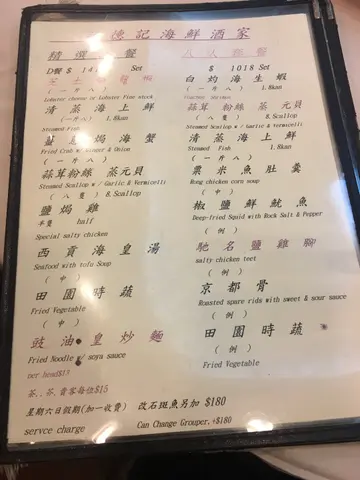 記海鮮酒家
精 餐
D餐 $ 14 Set
(一片八)
Lobster cheese or Lobster Fine stock
清蒸海上鮮
(一片八) 1.8kan
Steamed Fish
焗海蟹
(一片八)
Fried Crab w/ Ginger & Onion
蒜茸粉絲蒸元貝
Steamed Scallop w/ Garlic & Vermicelli
(八隻) 8.Scallop
鹽焗雞
半隻 half
Special salty chicken
西貢海皇湯
Seafood with tofu Soup
(中)
田園時蔬
Fried Vegetable
(中)
豉油皇炒麵
Fried Noodle w/ soya sauce
per head$15
茶..芥 貴客每位$15
星期六日假期(加一收費)
servce charge
$ 1018 Set
白灼海生蝦
(一片八) 1.8kan
蒜茸粉絲蒸元貝
(八隻) 8.Scallop
Steamed Scallop w/ Garlic & vermicelli
清蒸海上鮮
Steamed Fish 1.8kan
(一片八)
粟米魚肚羹
Rong chicken corn soup
(中)
椒鹽鮮魷魚
Deep-fried Squid with Rock Salt & Pepper
(例)
馳名鹽雞腳
salty chicken teet
(例)
京都骨
Roasted spare rids with sweet & sour sauce
(例)
田園時蔬
(例)
Fried Vegetable
改石斑魚另加 $180
Can Change Grouper.+$180